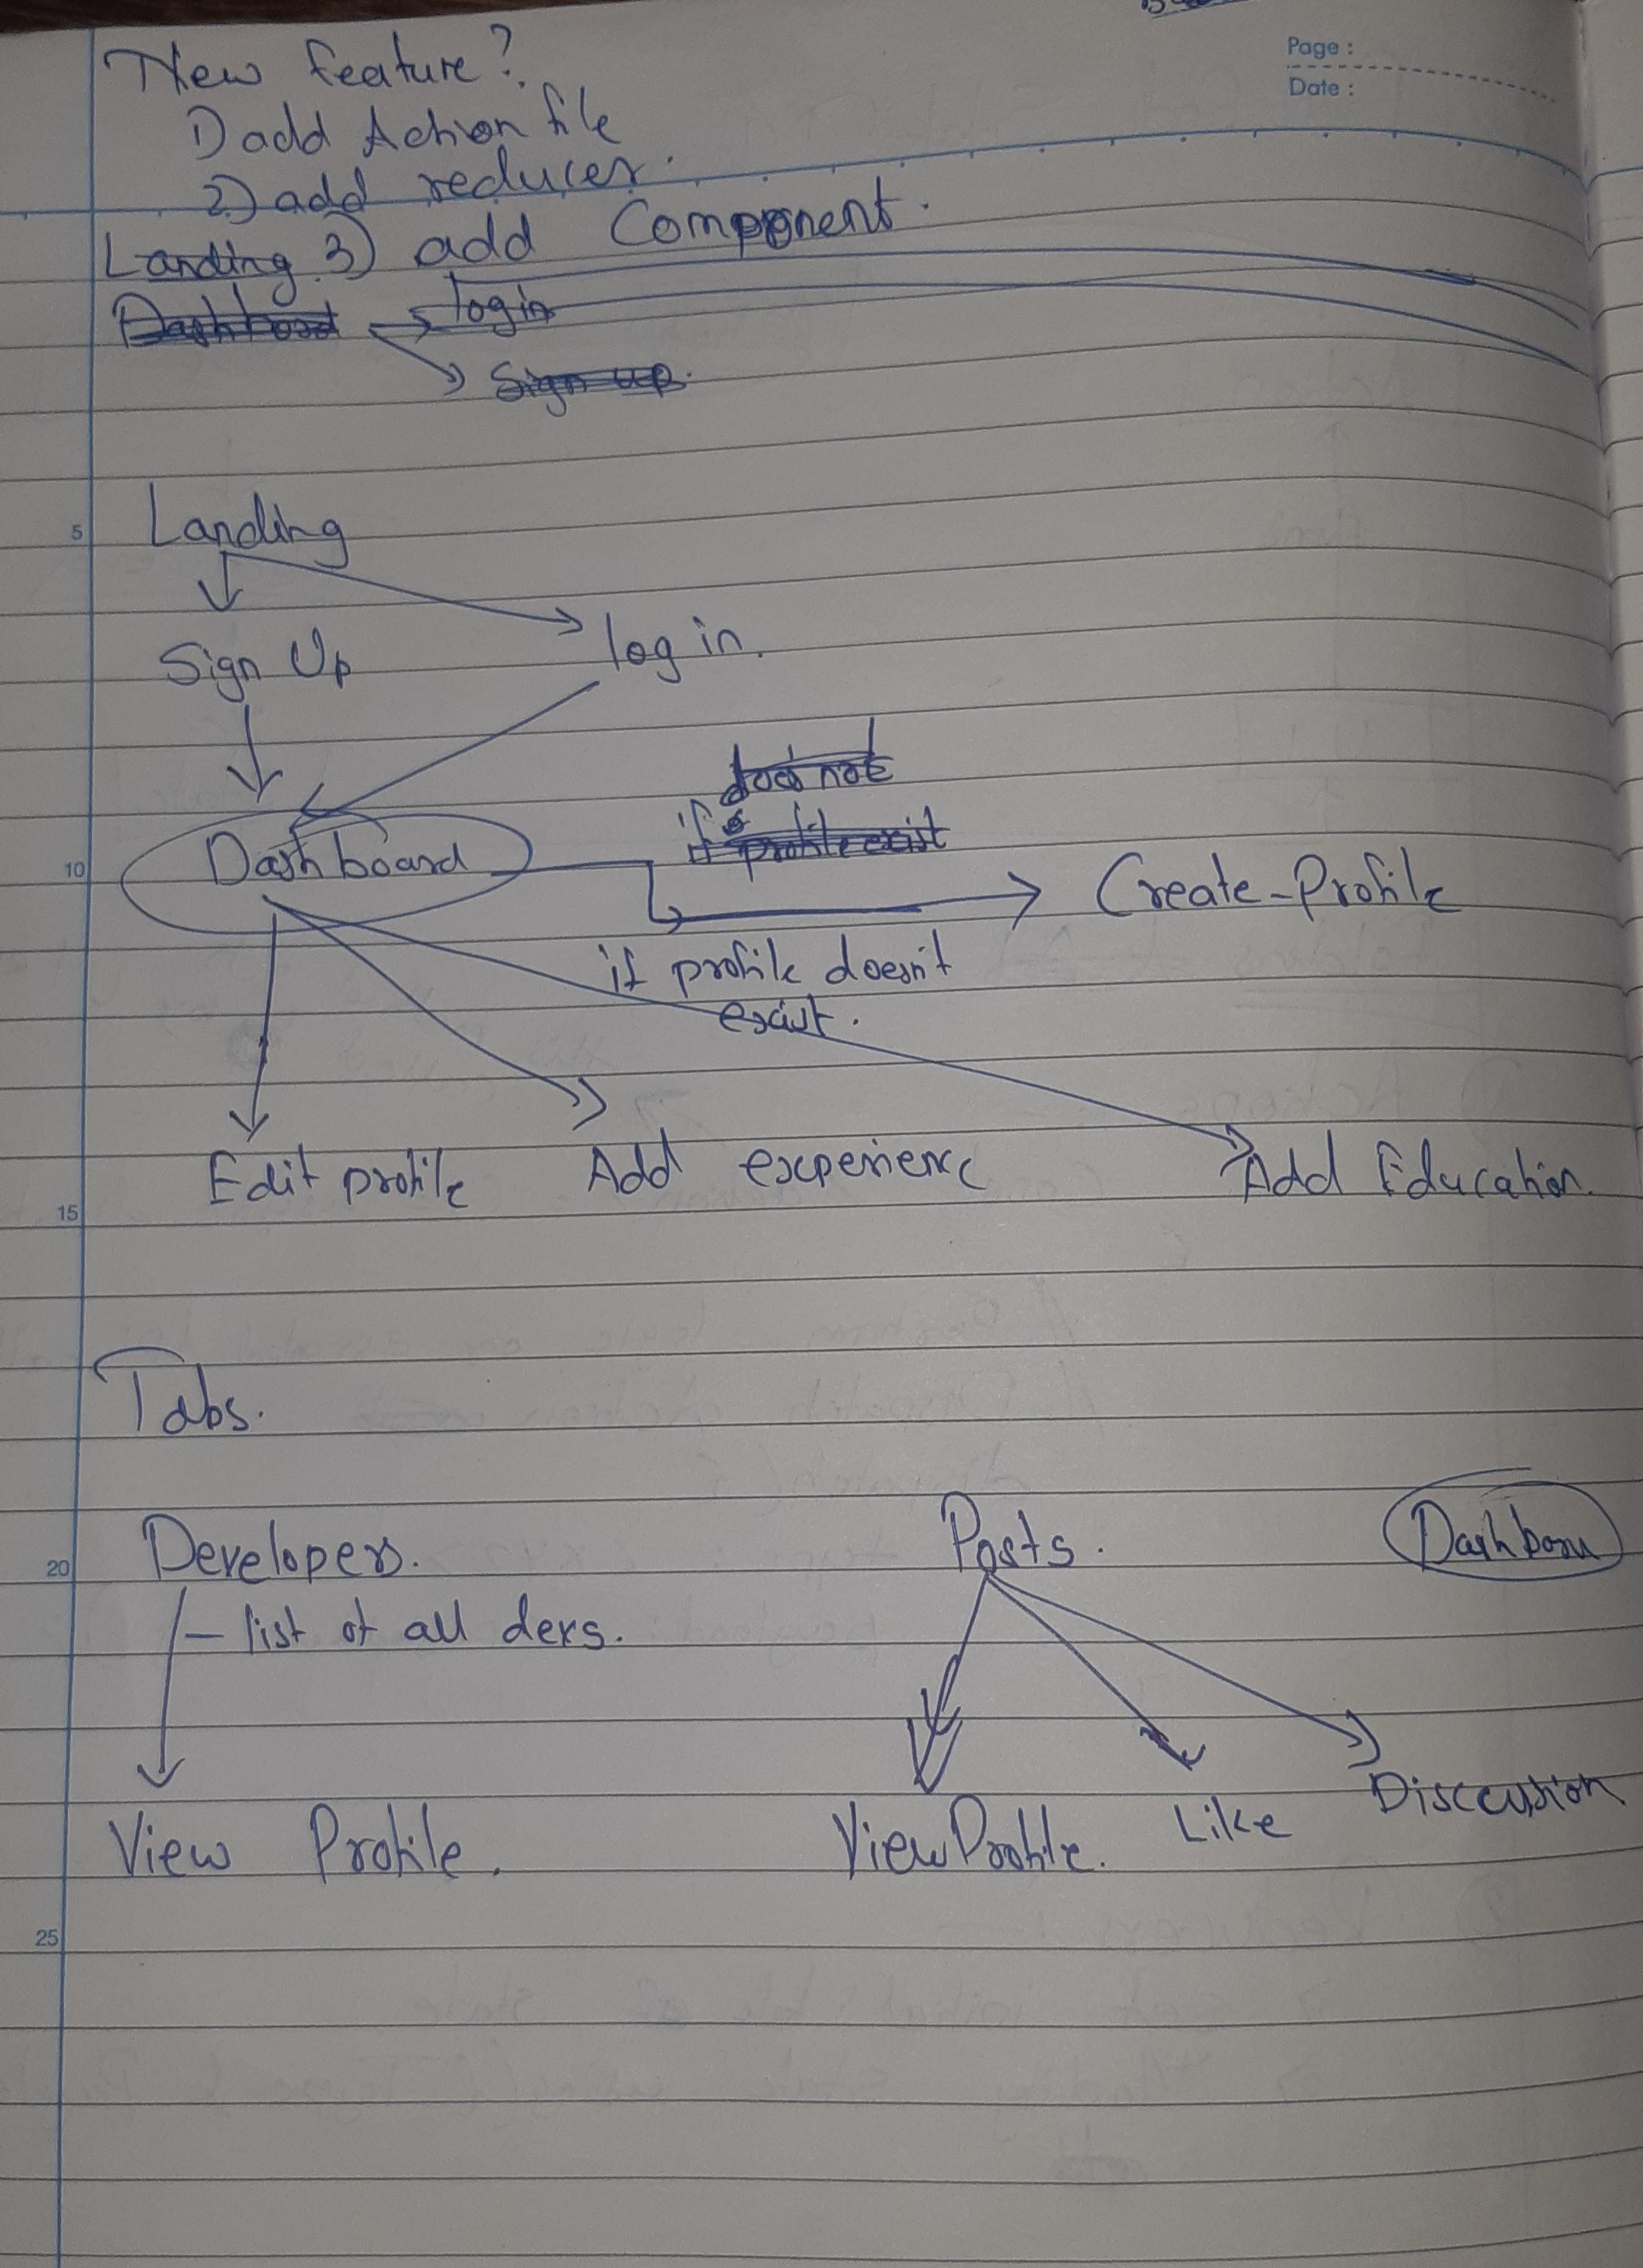 Page :
Date :
New feature?
1) add Action file
2) add reducer.
Landing 3) add Component.
Dashboard → login
Sign up.
5
Landing
Sign Up log in.
does not
if profile exist
10 Dashboard Create-Profile
if profile doesn't
exist.
Edit profile Add experience Add Education.
15
Tabs.
20 Developers. Posts. Dashboard
- list of all devs.
View Profile. View Profile. Like Disccusion
25